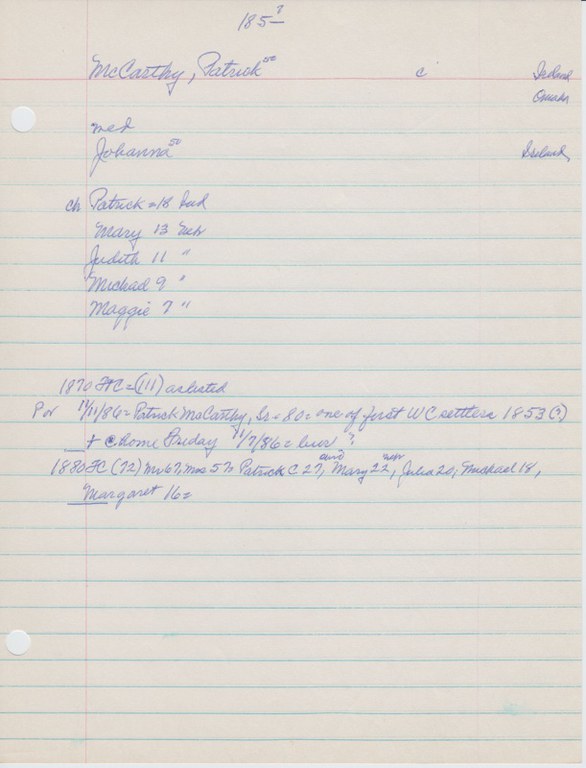 185-?
McCarthy, Patrick 50 c Ireland
Omaha
med
Johanna 50 Ireland
ch Patrick = 18 Ind
Mary 13 Neb
Judith 11 "
Michael 9 "
Maggie 7 "
1870 FC = (111) as listed
Por 11/11/86 = Patrick McCarthy, Sr = 80 = one of first WC settlers 1853 (?)
+ @ home Friday 11/7/86 = bur ?
1880 FC (72) Mr 67, Mrs 57, Patrick C 27, Ind Mary 22, Neb Julia 20, Michael 18,
Margaret 16 =